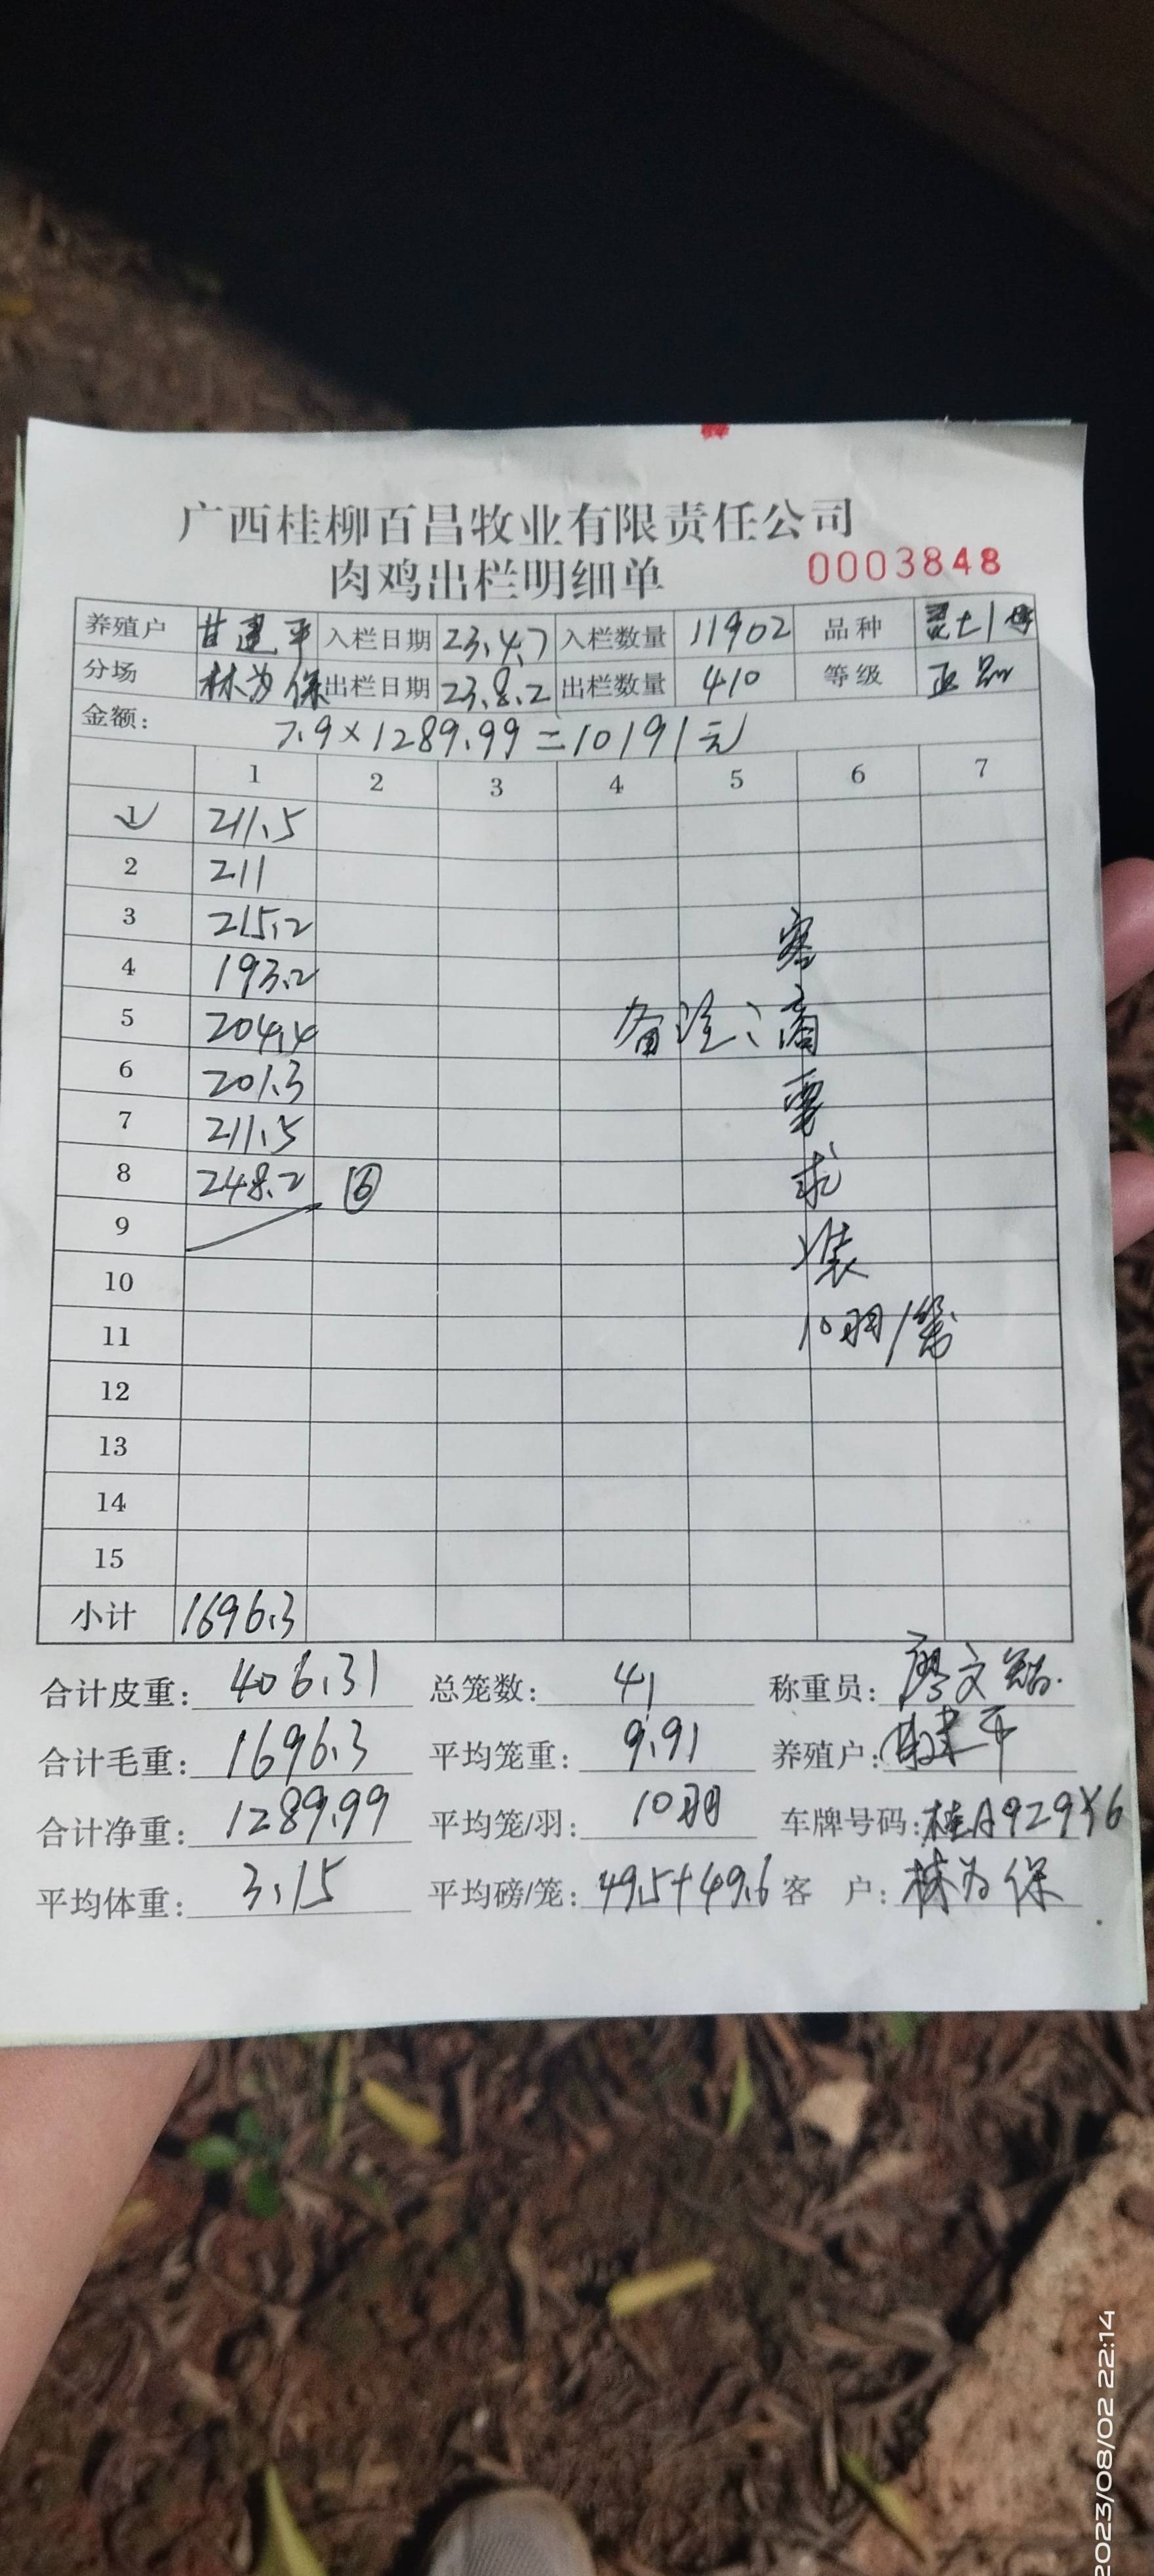 广西桂柳百昌牧业有限责任公司
肉鸡出栏明细单
0003848
养殖户 甘建平 入栏日期 23.4.7 入栏数量 11902 品种 灵土1号
分场 林为保 出栏日期 23.8.2 出栏数量 410 等级 正品
金额: 7.9×1289.99=10191元
1 2 3 4 5 6 7
1 211.5
2 211
3 215.2
4 193.2
5 204.4
6 201.3
7 211.5
8 248.2 ⑥
9
10
11
12
13
14
15
小计 1696.3
备注:客商要求装10羽/笼
合计皮重: 406.31 总笼数: 41 称重员: 廖文
合计毛重: 1696.3 平均笼重: 9.91 养殖户:
合计净重: 1289.99 平均笼/羽: 10羽 车牌号码: 桂A929Y6
平均体重: 3.15 平均磅/笼: 49.5+49.6 客 户: 林为保
2023/08/02 22:14